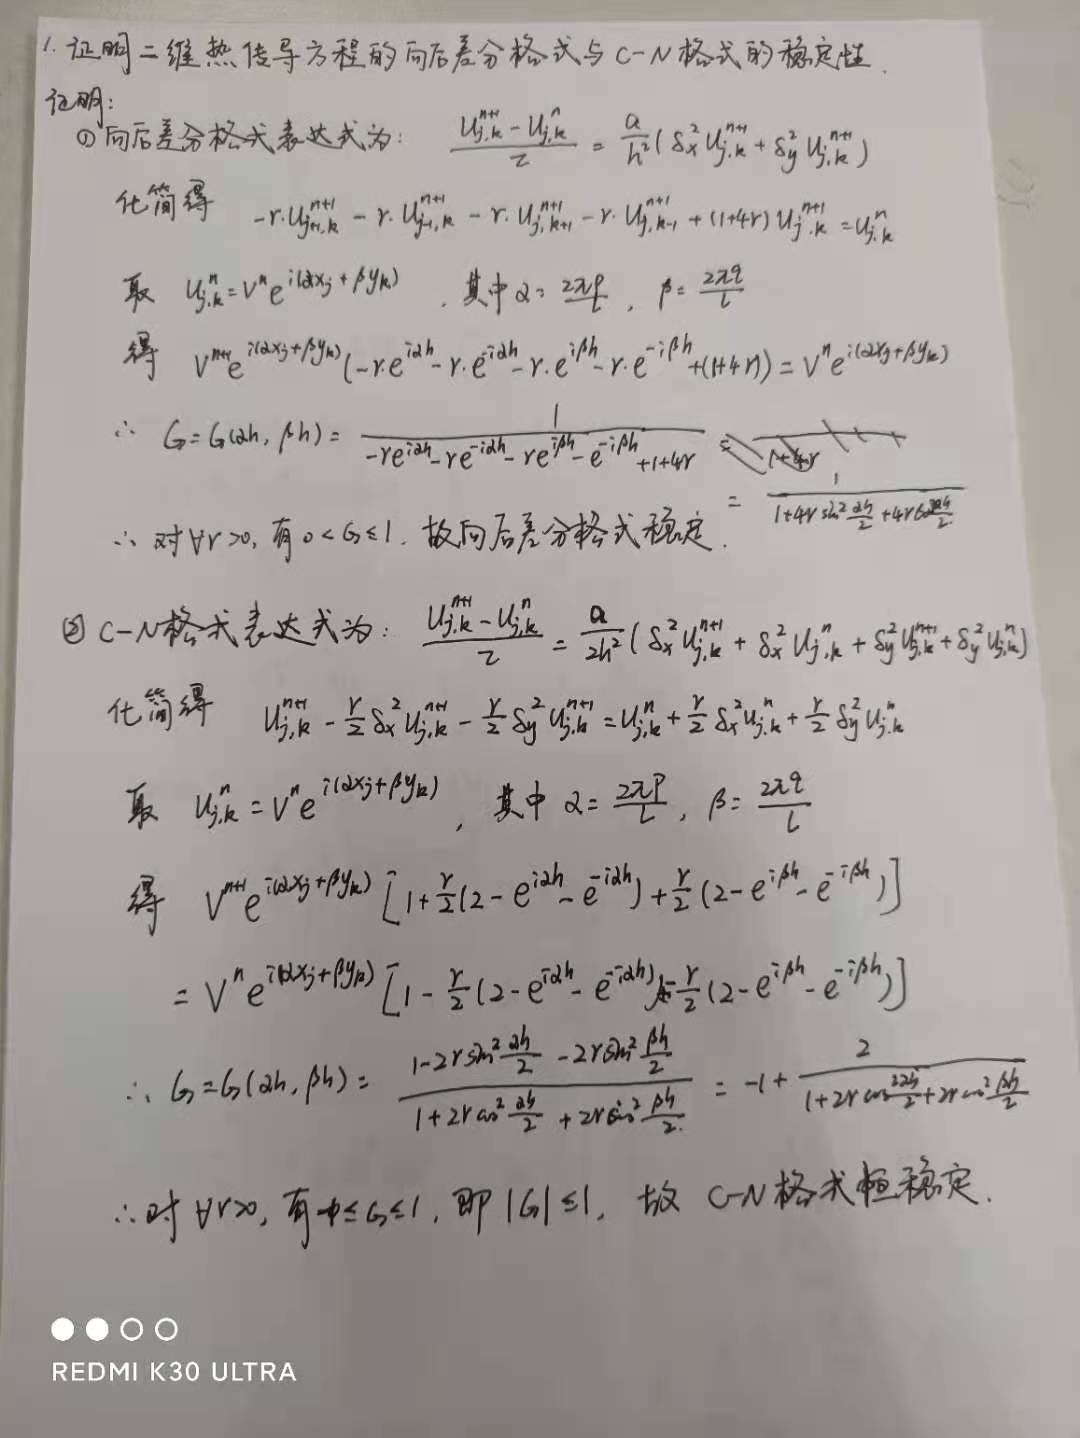 1. 证明二维热传导方程的向后差分格式与C-N格式的稳定性.
证明:
① 向后差分格式表达式为: (U_{j,k}^{n+1} - U_{j,k}^n)/τ = a/h² (δ_x² U_{j,k}^{n+1} + δ_y² U_{j,k}^{n+1})
化简得 -r·U_{j+1,k}^{n+1} - r·U_{j-1,k}^{n+1} - r·U_{j,k+1}^{n+1} - r·U_{j,k-1}^{n+1} + (1+4r)U_{j,k}^{n+1} = U_{j,k}^n
取 U_{j,k}^n = V^n e^{i(αx_j + βy_k)}, 其中 α = 2πp/l, β = 2πq/l
得 V^{n+1} e^{i(αx_j+βy_k)} (-r·e^{iαh} - r·e^{-iαh} - r·e^{iβh} - r·e^{-iβh} + (1+4r)) = V^n e^{i(αx_j+βy_k)}
∴ G = G(αh, βh) = 1/(-re^{iαh} - re^{-iαh} - re^{iβh} - e^{-iβh} + 1+4r)
= 1/(1+4r sin² αh/2 + 4r
∴ 对∀r>0, 有 0<G≤1. 故向后差分格式稳定.
② C-N格式表达式为: (U_{j,k}^{n+1} - U_{j,k}^n)/τ = a/2h² (δ_x² U_{j,k}^{n+1} + δ_x² U_{j,k}^n + δ_y² U_{j,k}^{n+1} + δ_y² U_{j,k}^n)
化简得 U_{j,k}^{n+1} - r/2 δ_x² U_{j,k}^{n+1} - r/2 δ_y² U_{j,k}^{n+1} = U_{j,k}^n + r/2 δ_x² U_{j,k}^n + r/2 δ_y² U_{j,k}^n
取 U_{j,k}^n = V^n e^{i(αx_j+βy_k)}, 其中 α = 2πp/l, β = 2πq/l
得 V^{n+1} e^{i(αx_j+βy_k)} [1 + r/2 (2 - e^{iαh} - e^{-iαh}) + r/2 (2 - e^{iβh} - e^{-iβh})]
= V^n e^{i(αx_j+βy_k)} [1 - r/2 (2 - e^{iαh} - e^{-iαh}) - r/2 (2 - e^{iβh} - e^{-iβh})]
∴ G = G(αh, βh) = (1 - 2r sin² αh/2 - 2r sin² βh/2)/(1 + 2r cos² αh/2 + 2r βh/2) = -1 + 2/(1 + 2r cos² αh/2 + 2r cos² βh/2)
∴ 对∀r>0, 有 -1≤G≤1, 即 |G|≤1, 故 C-N格式恒稳定.
REDMI K30 ULTRA